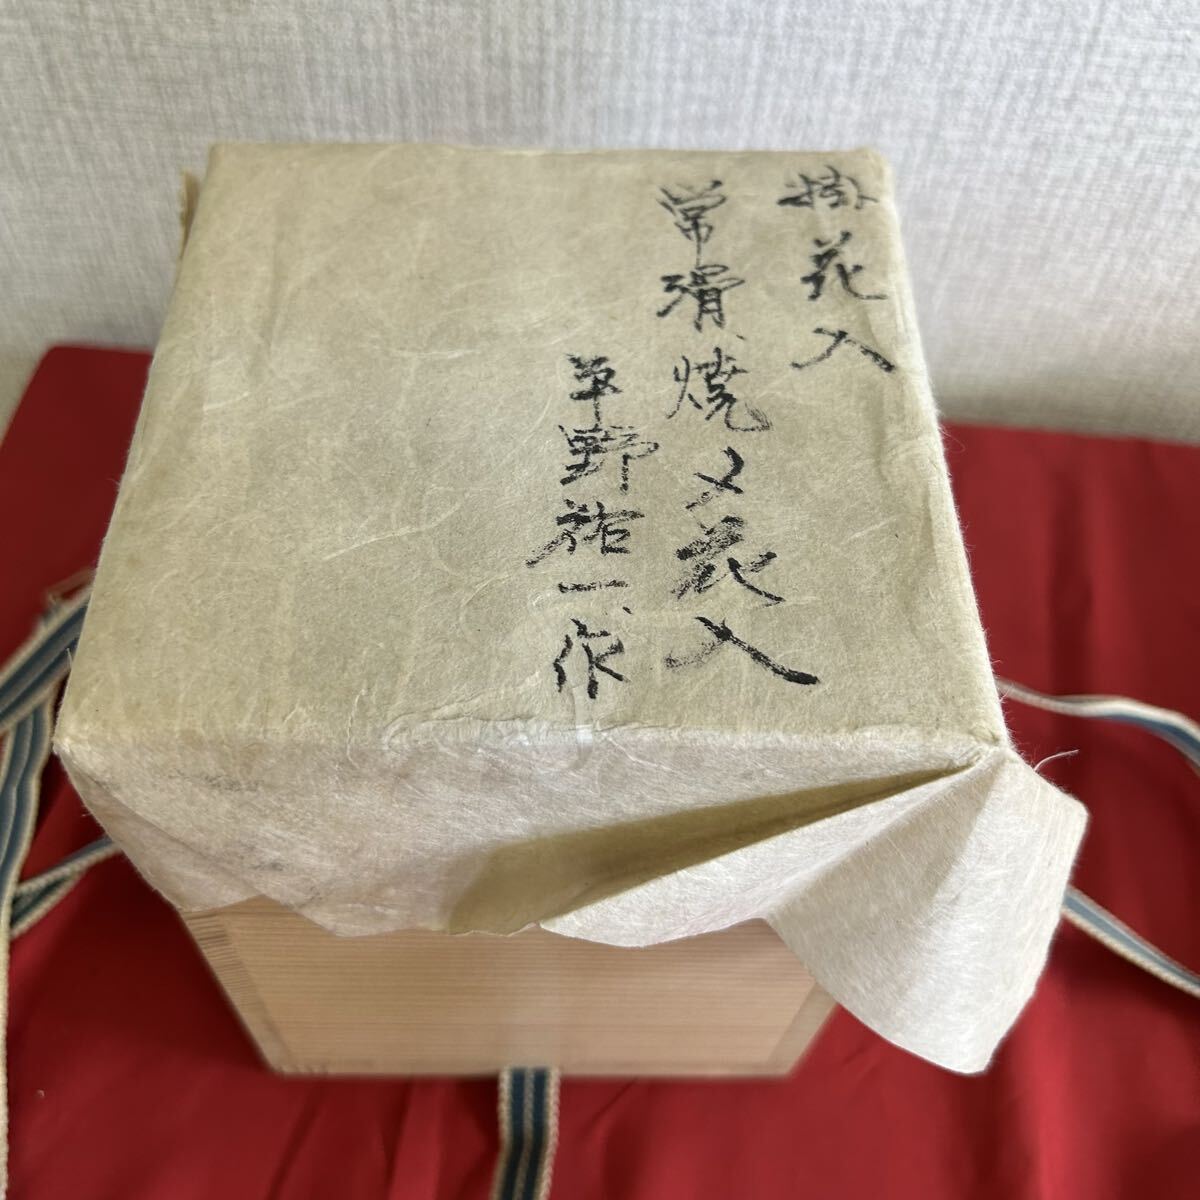 掛花入
常滑焼〆花入
草野祐一作